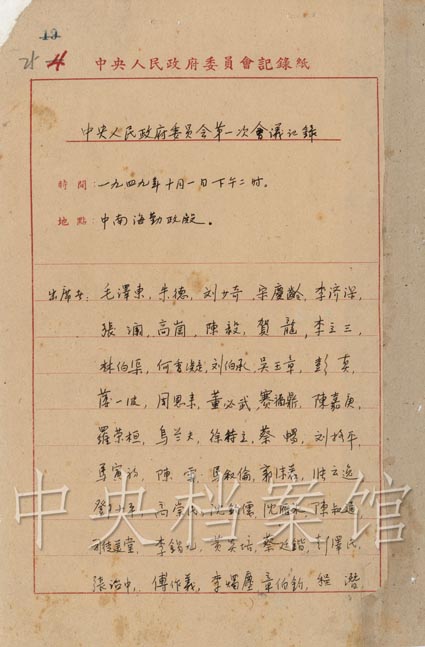 12
4
中央人民政府委員會記錄紙
中央人民政府委員会第一次會議记錄
時間:一九四九年十月一日下午二时。
地點:中南海勤政殿。
出席者:毛澤東,朱德,刘少奇,宋慶齡,李济深,
張瀾,高崗,陳毅,賀龍,李立三,
林伯渠,何香凝,刘伯承,吴玉章,彭真,
薄一波,周恩来,董必武,賽福鼎,陳嘉庚,
羅荣桓,烏兰夫,徐特立,蔡暢,刘格平,
馬寅初,陳雲,馬叙倫,郭沫若,
鄧小平,高崇民,沈鈞儒,沈雁冰,陳叔通,
司徒美堂,李錫九,黄炎培,蔡廷鍇,彭澤民,
張治中,傅作義,李燭塵,章伯鈞,程潜,
中央档案馆